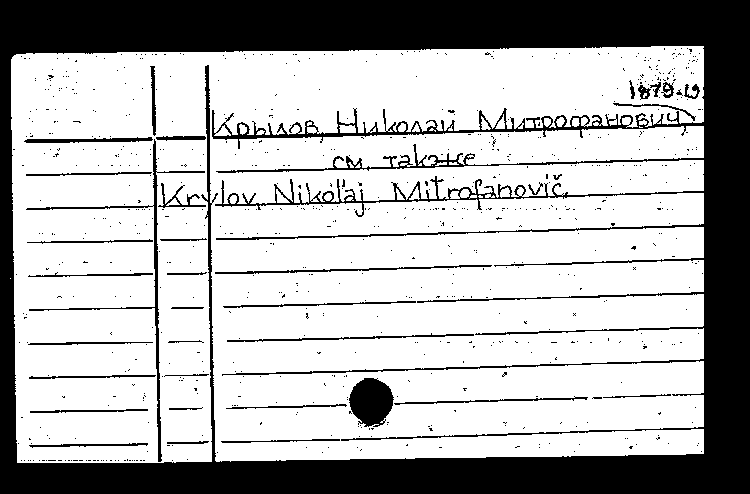 Крылов, Николай Митрофанович,
см. также
Krylov, Nikolaj Mitrofanovič.